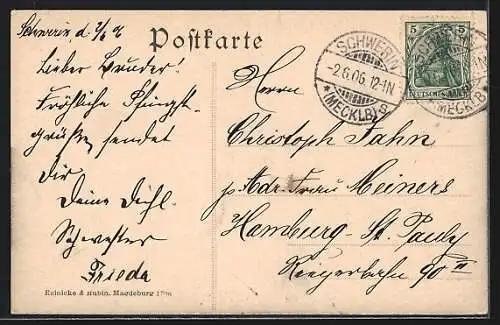 Schwerin d. 2/6 06
Postkarte
Lieber Bruder!
Fröhliche Pfingst-
grüße sendet
Dir
Deine Dichl.
Schwester
Frieda
Reinicke & Rubin, Magdeburg
SCHWERIN
-2.6.06.12-1N
*(MECKLB)*
5 5
DEUTSCHES REICH
Herrn
Christoph Jahn
p. Adr. Frau Meiners
Hamburg-St. Pauly
90 III